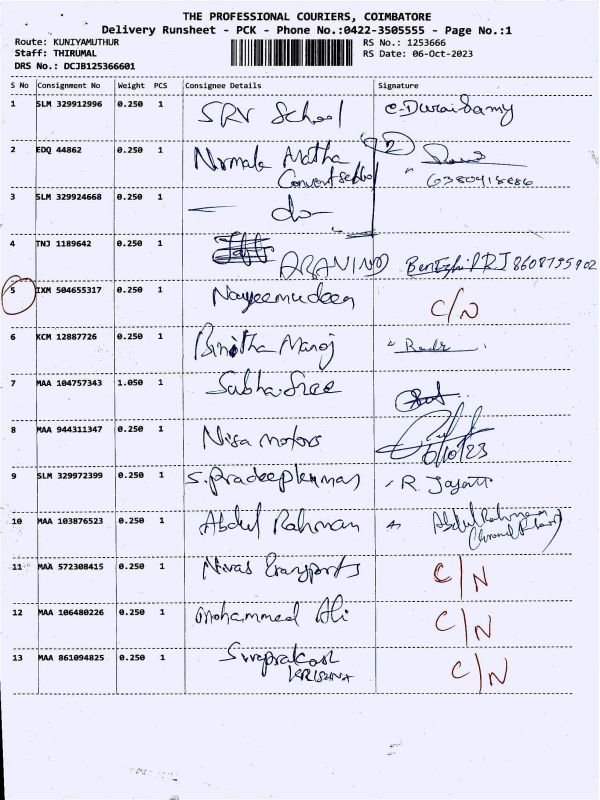 THE PROFESSIONAL COURIERS, COIMBATORE
Delivery Runsheet - PCK - Phone No.:0422-3505555 - Page No.:1
Route: KUNIYAMUTHUR RS No.: 1253666
Staff: THIRUMAL RS Date: 06-Oct-2023
DRS No.: DCJB125366601
S No Consignment No Weight PCS Consignee Details Signature
1 SLM 329912996 0.250 1 SRV School C. Duraisamy
2 EDQ 44862 0.250 1 Nirmala Matha 2
Convent school 6380418686
3 SLM 329924668 0.250 1 - do -
4 TNJ 1189642 0.250 1
ARAVIND 8608755902
5 IXM 504655317 0.250 1 Nayeemudeen C/N
6 KCM 12887726 0.250 1 Binitha Manoj
7 MAA 104757343 1.050 1 Subha Sree
8 MAA 944311347 0.250 1 Nisa motors 6/10/23
9 SLM 329972399 0.250 1 S. Pradeepkumar R. Jayatt
10 MAA 103876523 0.250 1 Abdul Rahman Abdul Rahman
11 MAA 572308415 0.250 1 Nivas Transports C/N
12 MAA 106480226 0.250 1 Mohammed Ali C/N
13 MAA 861094825 0.250 1 Sivaprakash C/N
KRISHNA